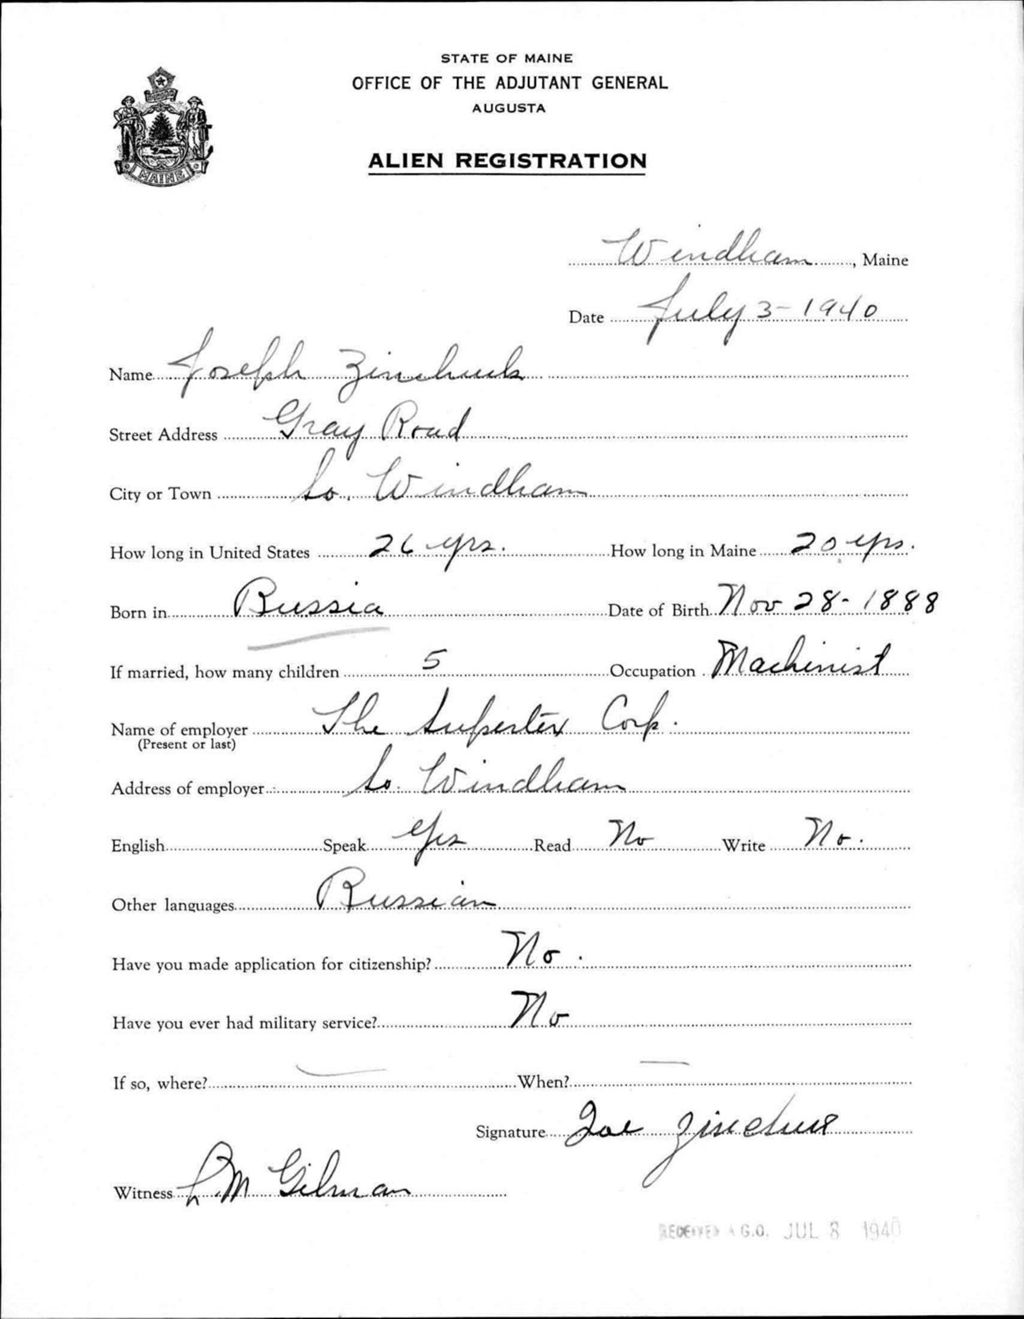 STATE OF MAINE
OFFICE OF THE ADJUTANT GENERAL
AUGUSTA
ALIEN REGISTRATION
MAINE
Windham, Maine
Date July 3-1940
Name Joseph Zinchuck
Street Address Gray Road
City or Town So. Windham
How long in United States 26 yrs. How long in Maine 20 yrs.
Born in Russia Date of Birth Nov 28-1888
If married, how many children 5 Occupation Machinist
Name of employer The Supertex Corp.
(Present or last)
Address of employer So. Windham
English Speak Yes Read No Write No.
Other languages Russian
Have you made application for citizenship? No.
Have you ever had military service? No
If so, where? — When? —
Signature Joe
Witness L M Gilman
RECEIVED A.G.O. JUL 8 1940